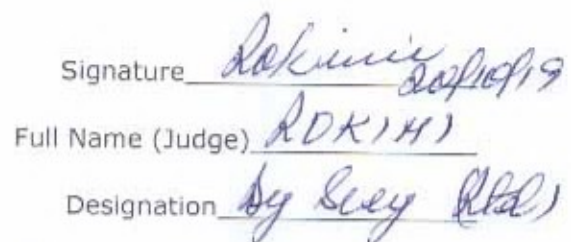 Signature Rokimi 20/10/19
Full Name (Judge) ROKIMI
Designation Dy Secy (Rtd)